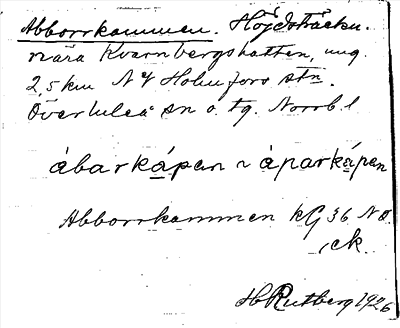 Abborrkammen. Höjdsträckn.
nära Kvarnbergshatten, ung.
2,5 km N Holmfors stn.
Överluleå sn o. tg. Norrb. l
ábarkápen ~ áparkápen
Abborrkammen kG 36 NO
ck.
HRutberg 1926